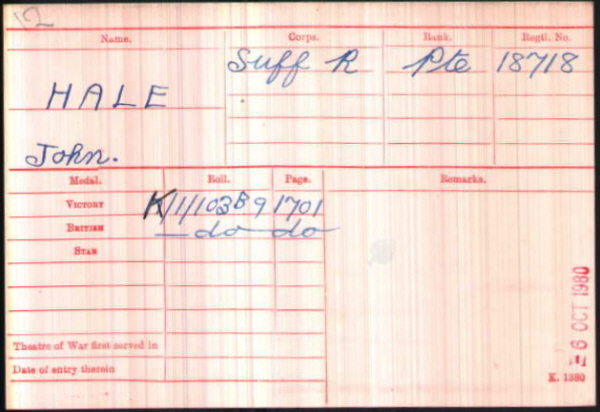 12
Name. Corps. Rank. Regtl. No.
Suff R Pte 18718
HALE
John.
Medal. Roll. Page. Remarks.
VICTORY K/1/103B9 1701
BRITISH —do— do
STAR
-6 OCT 1980
Theatre of War first served in
Date of entry therein
K. 1380